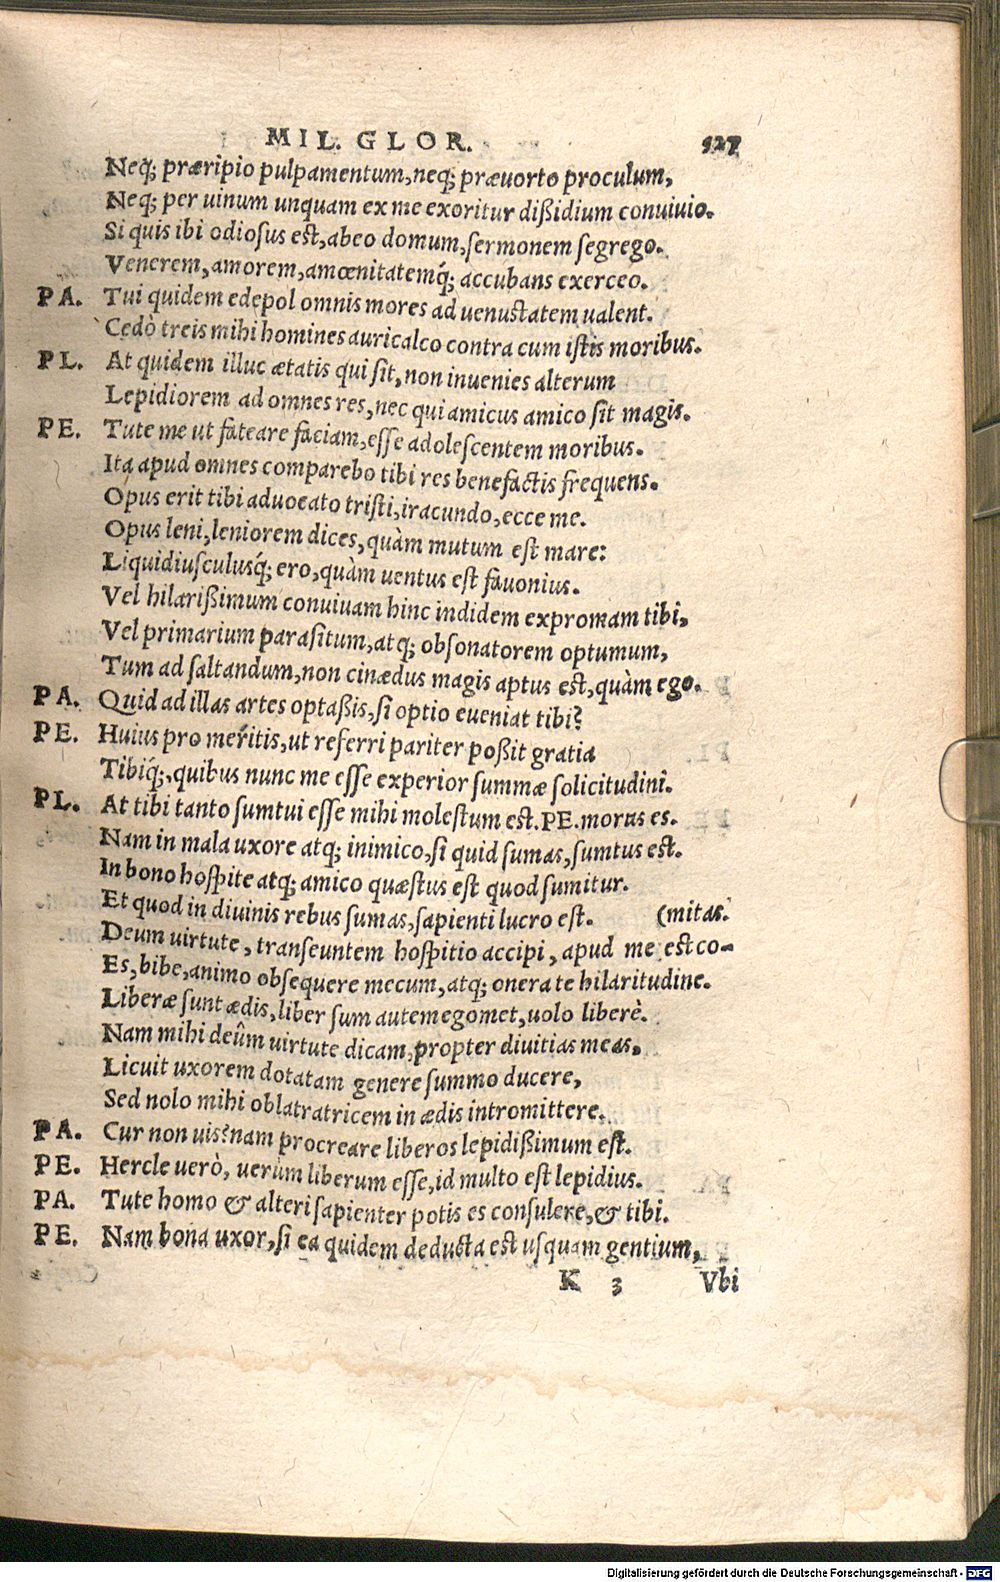 MIL. GLOR. 527
Neq; præripio pulpamentum, neq; præuorto proculum,
Neq; per uinum unquam ex me exoritur dißidium conuiuio.
Si quis ibi odiosus est, abeo domum, sermonem segrego.
Venerem, amorem, amœnitatemq́; accubans exerceo.
PA. Tui quidem edepol omnis mores ad uenustatem ualent.
Cedò treis mihi homines auricalco contra cum istis moribus.
PL. At quidem illuc ætatis qui sit, non inuenies alterum
Lepidiorem ad omnes res, nec qui amicus amico sit magis.
PE. Tute me ut fateare faciam, esse adolescentem moribus.
Ita apud omnes comparebo tibi res benefactis frequens.
Opus erit tibi aduocato tristi, iracundo, ecce me.
Opus leni, leniorem dices, quàm mutum est mare:
Liquidiusculusq́; ero, quàm uentus est fauonius.
Vel hilarißimum conuiuam hinc indidem expromam tibi,
Vel primarium parasitum, atq; obsonatorem optumum,
Tum ad saltandum, non cinædus magis aptus est, quàm ego.
PA. Quid ad illas artes optaßis, si optio eueniat tibi?
PE. Huius pro meritis, ut referri pariter poßit gratia
Tibiq́;, quibus nunc me esse experior summæ solicitudini.
PL. At tibi tanto sumtui esse mihi molestum est. PE. morus es.
Nam in mala uxore atq; inimico, si quid sumas, sumtus est.
In bono hospite atq; amico quæstus est quod sumitur.
Et quod in diuinis rebus sumas, sapienti lucro est. (mitas.
Deum uirtute, transeuntem hospitio accipi, apud me est co-
Es, bibe, animo obsequere mecum, atq; onera te hilaritudine.
Liberæ sunt ædis, liber sum autem egomet, uolo liberè.
Nam mihi deûm uirtute dicam, propter diuitias meas,
Licuit uxorem dotatam genere summo ducere,
Sed nolo mihi oblatratricem in ædis intromittere.
PA. Cur non uis? nam procreare liberos lepidißimum est.
PE. Hercle uerò, uerùm liberum esse, id multo est lepidius.
PA. Tute homo & alteri sapienter potis es consulere, & tibi.
PE. Nam bona uxor, si ea quidem deducta est usquam gentium,
K 3 Vbi
Digitalisierung gefördert durch die Deutsche Forschungsgemeinschaft - DFG